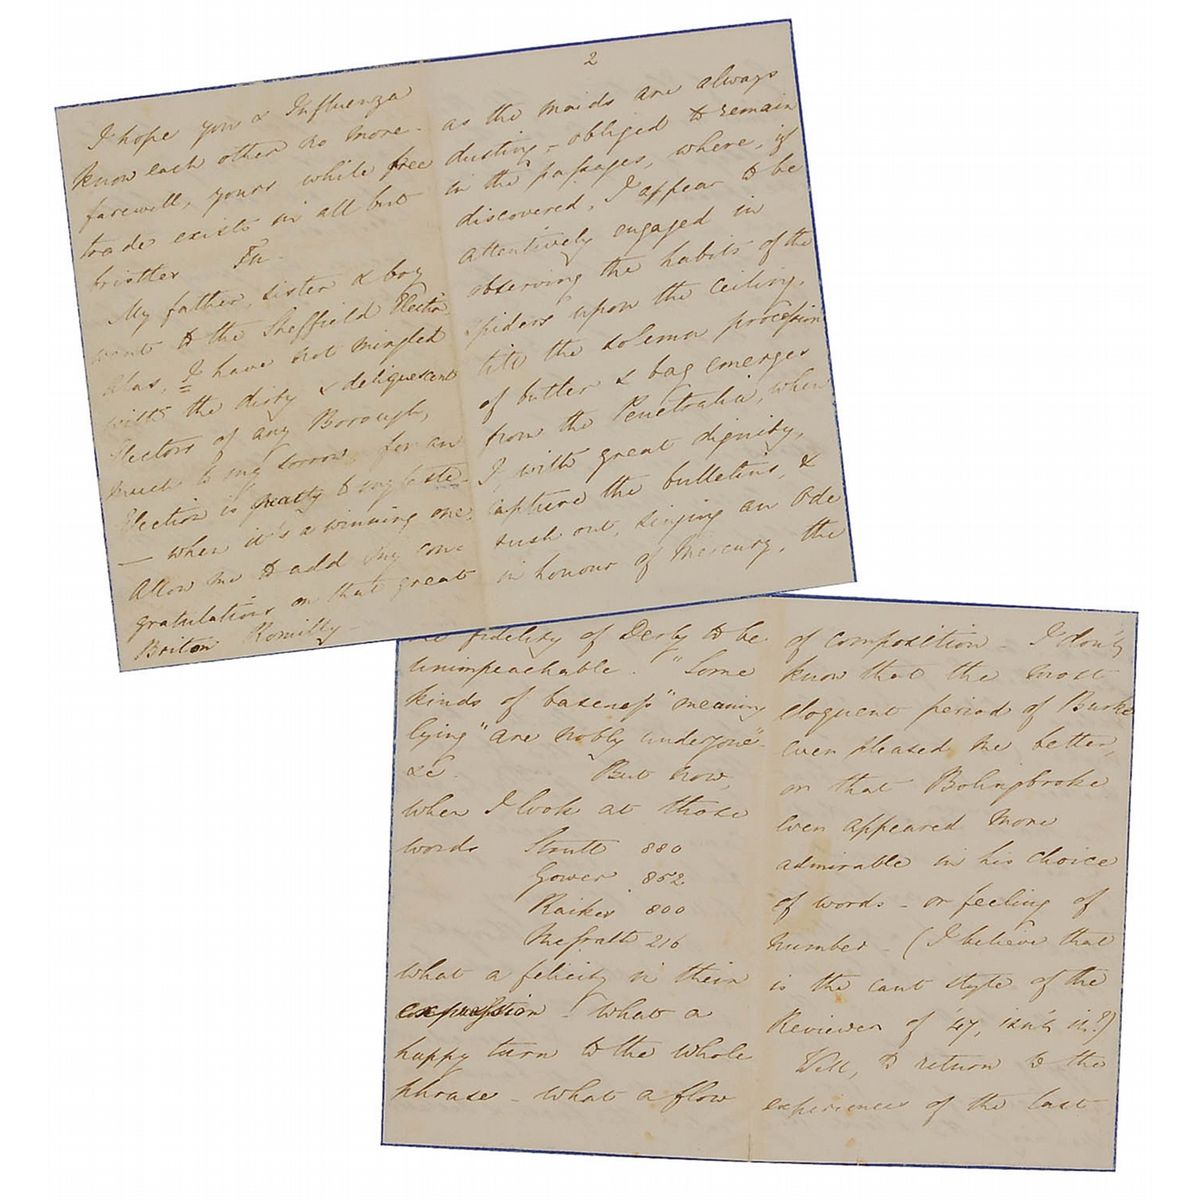 I hope you & Influenza
know each other no more -
farewell, yours while free
trade exists in all but
bristles Fn.
My father, sister & boy
went to the Sheffield Election
Alas, I have not mingled
with the dirty & deliquescent
Electors of any Borough,
much to my sorrow, for an
Election is greatly to my taste -
- when it's a winning one.
Allow me to add my con-
gratulations on that great
Briton Romilly -
2
as the maids are always
dusting - obliged to remain
in the passages, where, if
discovered, I appear to be
attentively engaged in
observing the habits of the
spiders upon the ceiling,
till the solemn procession
of butler & bag emerges
from the Penetralia, when
I, with great dignity,
capture the bulletins, &
rush out, singing an Ode
in honour of Mercury, the
fidelity of Derby to be
unimpeachable. "Some
kinds of baseness" meaning
lying "are nobly undergone" -
&c. But now,
when I look at those
words Strutt 880
Gower 852
Raikes 800
McGrath 216
what a felicity in their
expression - what a
happy turn to the whole
phrase - what a flow
of composition - I don't
know that the most
eloquent period of Burke
ever pleased me better,
or that Bolingbroke
ever appeared more
admirable in his choice
of words - or feeling of
number - (I believe that
is the cant style of the
Reviewer of '47, isn't it?)
Well, to return to the
experiences of the last